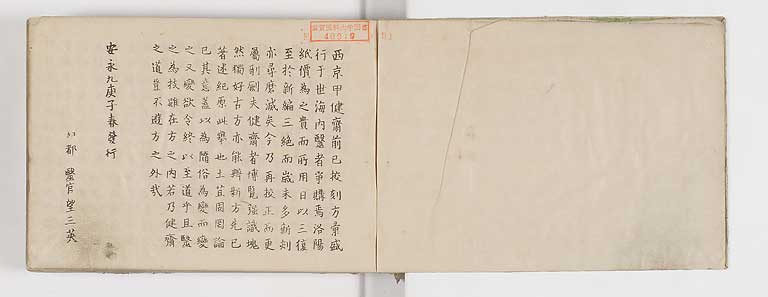 西京甲健齋前已挍刻方彙盛
行于世海内醫者爭購焉洛陽
紙價為之貴而所用日以三復
至於新編三絕而歲未多新刻
亦尋磨滅矣今乃再挍正而更
屬剞劂夫健齋者博覧强識塊
然獨好古方亦能辨新方先已
著述紀原此舉也土苴固論
已其意蓋以為隨俗為變而變
之又變欲令終以至道乎且醫
之為技雖在方之内若乃健齋
之道豈不遊方之外哉
安永九庚子春發行
都 醫官望三英